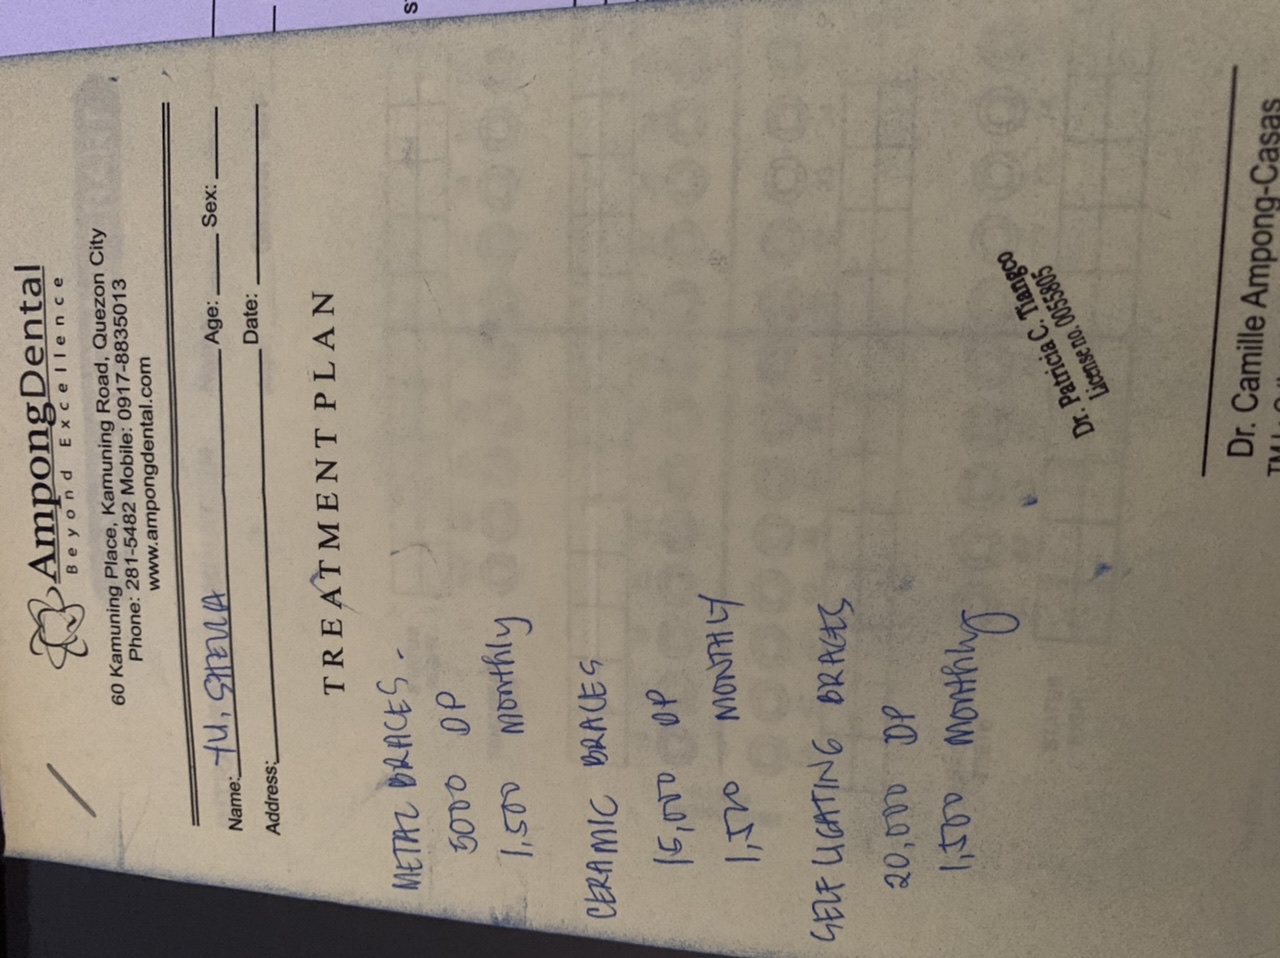 AmpongDental
Beyond Excellence
60 Kamuning Place, Kamuning Road, Quezon City
Phone: 281-5482 Mobile: 0917-8835013
www.ampongdental.com
Name: YU, SHEILA Age: Sex:
Address: Date:
TREATMENT PLAN
METAL BRACES -
5000 DP
1,500 Monthly
CERAMIC BRACES
15,000 DP
1,500 MONTHLY
SELF LIGATING BRACES
20,000 DP
1,500 Monthly
Dr. Patricia C. Tiangco
License no. 0055805
Dr. Camille Ampong-Casas